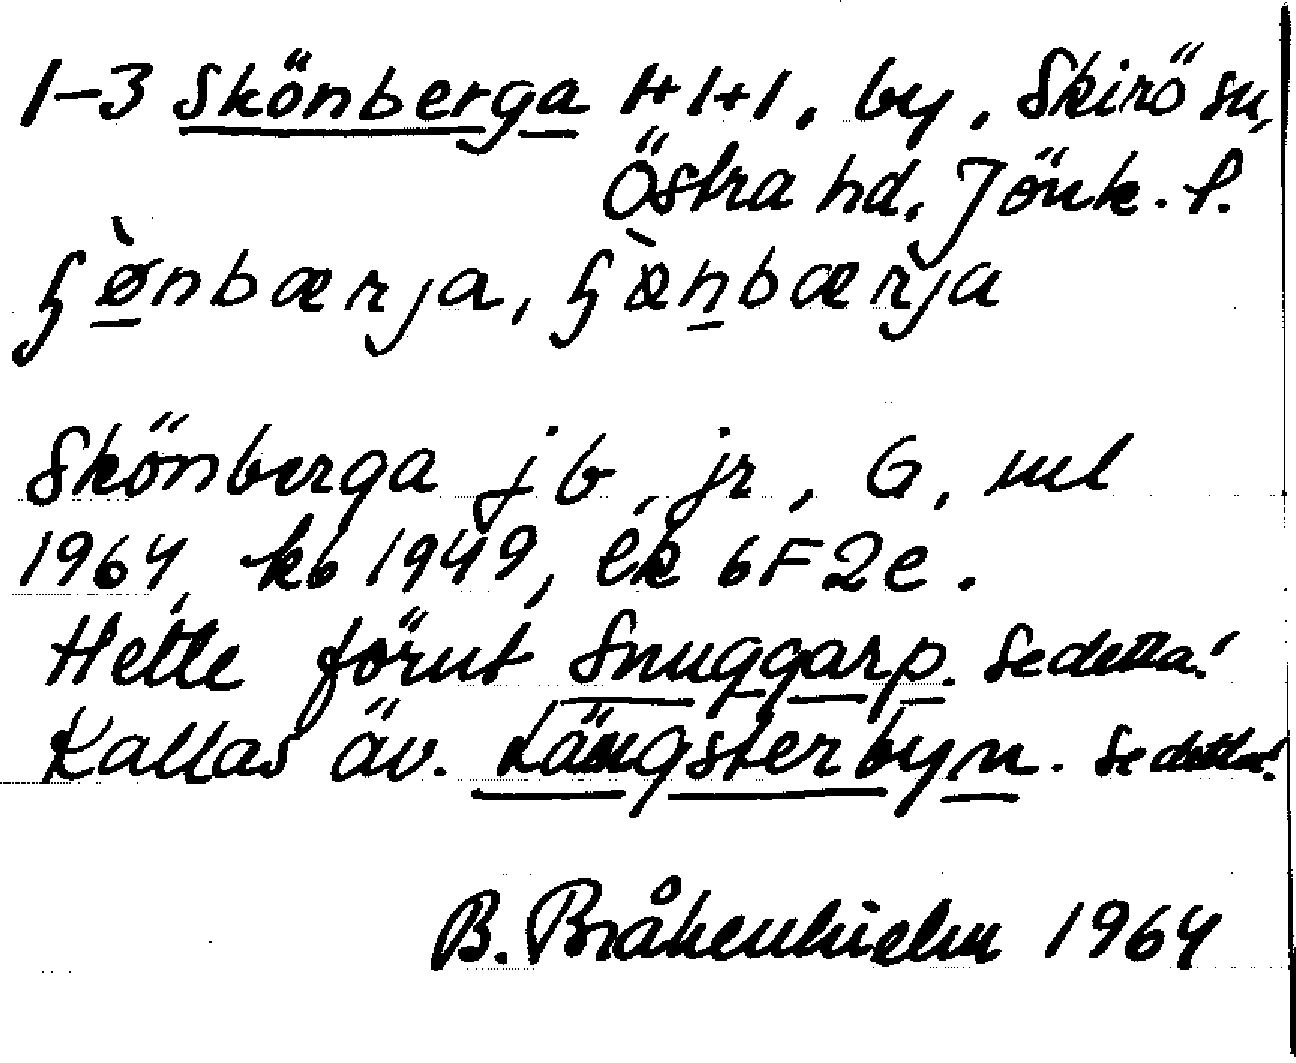 1-3 Skönberga 1+1+1, by, Skirö sn,
Östra hd, Jönk. l.
ɧø̀nbærja, ɧæ̀nbærja
Skönberga jb, jr, G, ml
1964, kb 1949, ek 6F2e.
Hette förut Snuggarp. Se detta!
Kallas äv. Längsterbyn. Se detta!
B. Bråkenhielm 1964